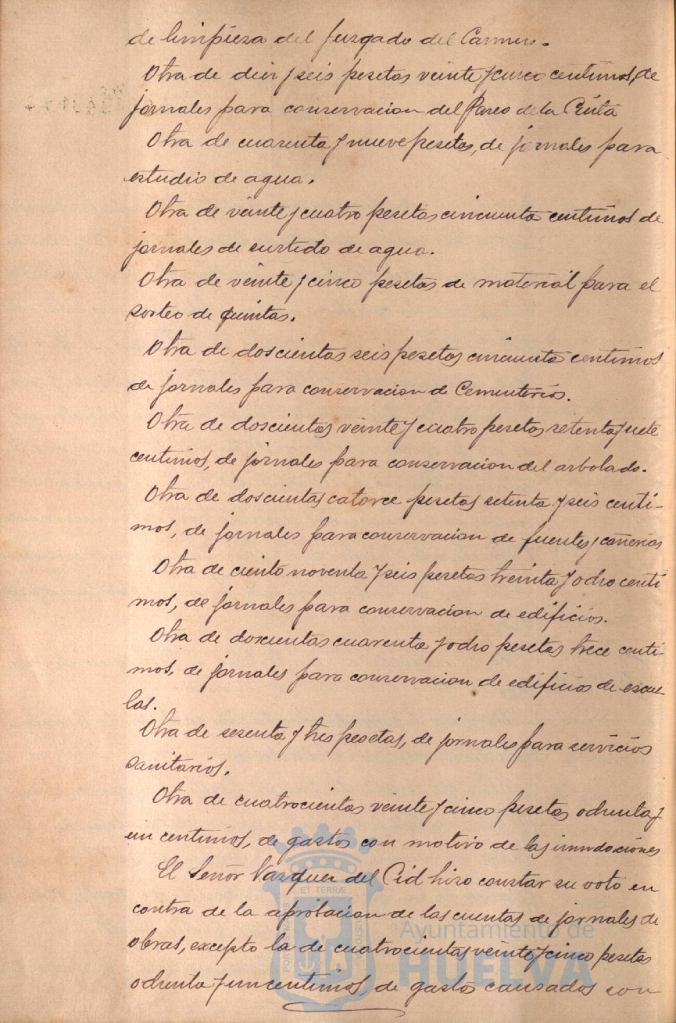 de limpieza del Juzgado del Carmen.
Otra de diez y seis pesetas veinte y cinco centimos, de
jornales para conservacion del Paseo de la Cinta
Otra de cuarenta y nueve pesetas, de jornales para
estudio de agua.
Otra de veinte y cuatro pesetas cincuenta centimos de
jornales de surtido de agua.
Otra de veinte y cinco pesetas de material para el
sorteo de quintas.
Otra de doscientas seis pesetas cincuenta centimos
de jornales para conservacion de Cementerios.
Otra de doscientas veinte y cuatro pesetas setenta y siete
centimos, de jornales para conservacion del arbolado.
Otra de doscientas catorce pesetas setenta y seis centi-
mos, de jornales para conservacion de fuentes y cañerias
Otra de ciento noventa y seis pesetas treinta y ocho centi
mos, de jornales para conservacion de edificios.
Otra de doscientas cuarenta y ocho pesetas trece centi-
mos, de jornales para conservacion de edificios de escue
las.
Otra de sesenta y tres pesetas, de jornales para servicios
sanitarios.
Otra de cuatrocientas veinte y cinco pesetas ochenta y
un centimos, de gastos con motivo de las inundaciones
El Señor Vazquez del Cid hizo constar su voto en
contra de la aprobacion de las cuentas de jornales de
obras, excepto la de cuatrocientas veinte y cinco pesetas
ochenta y un centimos de gastos causados con
Ayuntamiento de
HUELVA